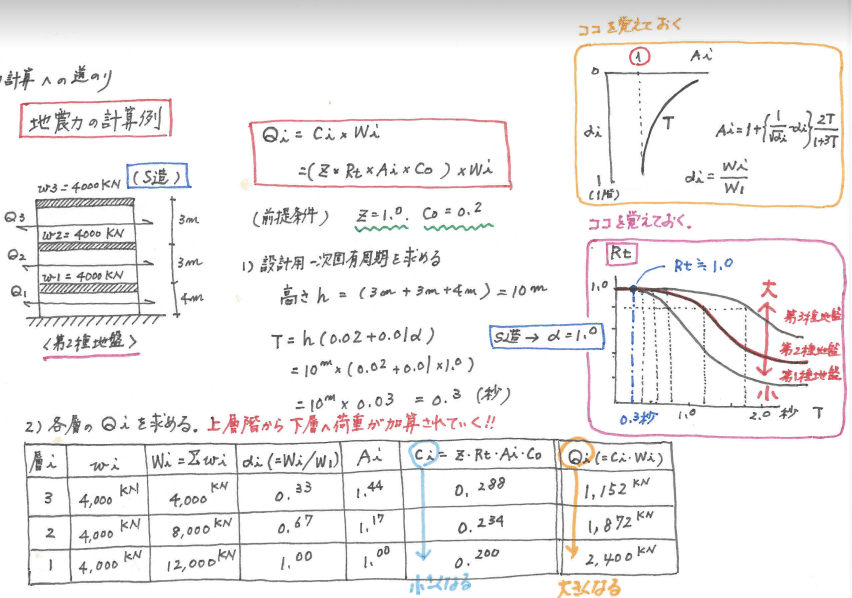 ココを覚えておく
計算への道のり
地震力の計算例
(S造)
w3=4000KN
Q3
3m
w2=4000KN
Q2
3m
w1=4000KN
Q1
4m
<第2種地盤>
Qi = Ci × Wi
=(Z×Rt×Ai×Co)×Wi
(前提条件) Z=1.0. Co=0.2
1) 設計用一次固有周期を求める
高さ h = (3m+3m+4m) = 10m
T = h(0.02+0.01α)
S造→α=1.0
=10m×(0.02+0.01×1.0)
=10m×0.03 = 0.3 (秒)
1 Ai
0
αi
T
1
(1階)
Ai=1+{1/√αi-αi}2T/1+3T
αi=Wi/W1
ココを覚えておく。
Rt
Rt≒1.0
1.0
大
第3種地盤
第2種地盤
第1種地盤
小
0.3秒 1.0 2.0秒 T
2) 各層のQiを求める。上層階から下層へ荷重が加算されていく!!
層i wi Wi=Σwi αi(=Wi/W1) Ai Ci=Z・Rt・Ai・Co Qi(=Ci・Wi)
3 4,000KN 4,000KN 0.33 1.44 0.288 1,152KN
2 4,000KN 8,000KN 0.67 1.17 0.234 1,872KN
1 4,000KN 12,000KN 1.00 1.00 0.200 2,400KN
小さくなる 大きくなる